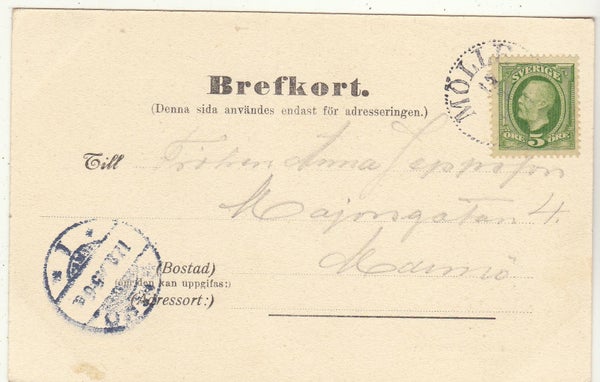 MÖLLE
SVERIGE
ÖRE 5 ÖRE
Brefkort.
(Denna sida användes endast för adresseringen.)
Till Fröken Anna Jeppsson
Majorsgatan 4.
Malmö
(Bostad)
(om den kan uppgifvas:)
(Adressort:)
* 1 *